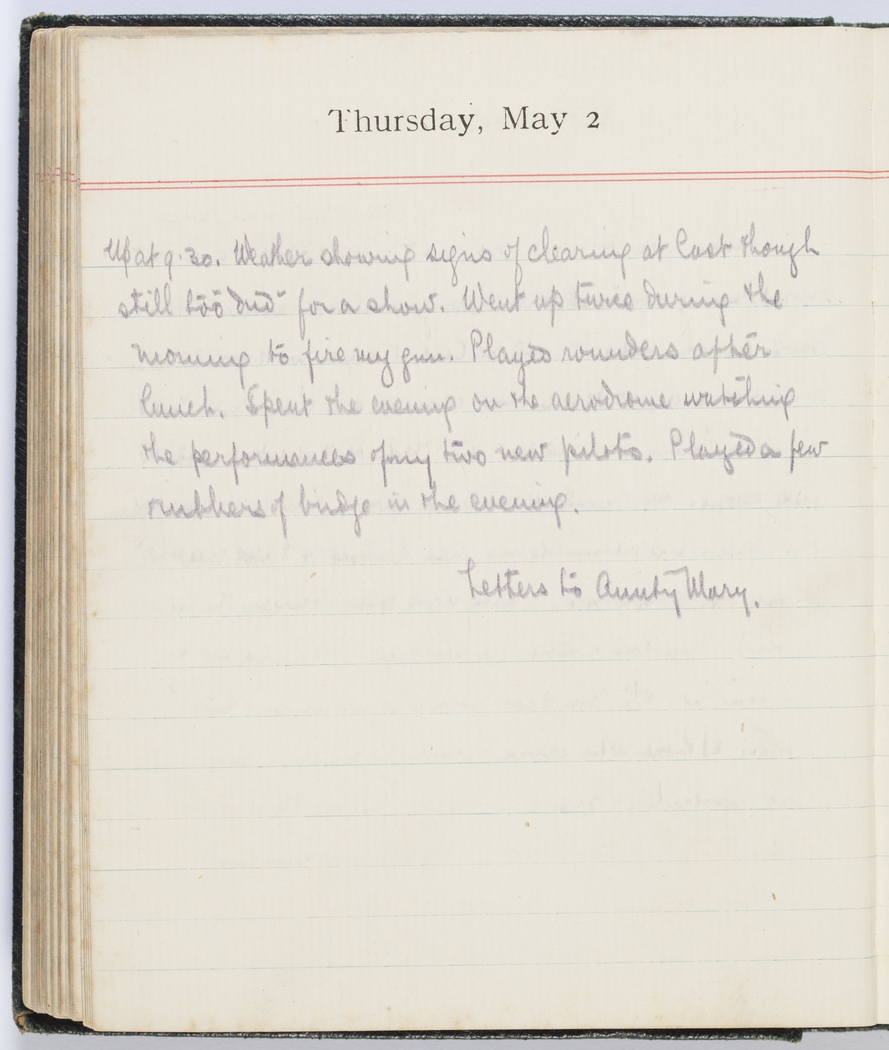 Thursday, May 2
Up at 9.30. Weather showing signs of clearing at last though
still too "dud" for a show. Went up twice during the
morning to fire my gun. Played rounders after
lunch. Spent the evening on the aerodrome watching
the performances of my two new pilots. Played a few
rubbers of bridge in the evening.
Letters to Aunty Mary.